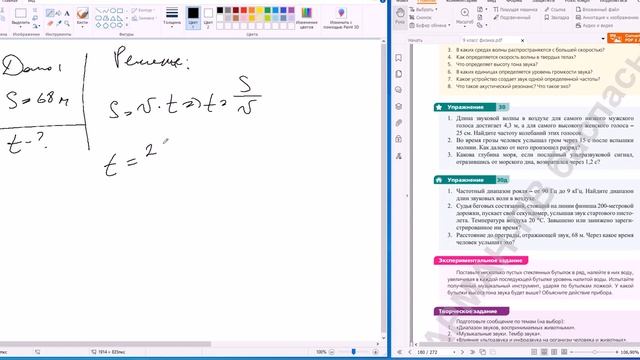 9 класс физика.pdf
Изменить с помощью Paint 3D
Изменение цветов
Дано:
S = 68 м
t - ?
Решение:
S = v · t => t = S/v
t = 2
3. В каких средах волны распространяются с большей скоростью?
4. Как определяется скорость волны в твердых телах?
5. Что определяет высоту тона звука?
6. В каких единицах определяется уровень громкости звука?
7. Какое устройство создает звук одной определенной частоты?
8. Что такое акустический резонанс? Что такое эхо?
Упражнение 30
1. Длина звуковой волны в воздухе для самого низкого мужского
голоса достигает 4,3 м, а для самого высокого женского голоса –
25 см. Найдите частоту колебаний этих голосов.
2. Во время грозы человек услышал гром через 15 с после вспышки
молнии. Как далеко от него произошел разряд?
3. Какова глубина моря, если посланный ультразвуковой сигнал,
отразившись от морского дна, возвратился через 1,2 с?
Упражнение 30д
1. Частотный диапазон рояля – от 90 Гц до 9 кГц. Найдите диапазон
длин звуковых волн в воздухе.
2. Судья беговых состязаний, стоящий на линии финиша 200-метровой
дорожки, пускает свой секундомер, услышав звук стартового писто-
лета. Температура воздуха 20 °С. Завышено или занижено зареги-
стрированное им время?
3. Расстояние до преграды, отражающей звук, 68 м. Через какое время
человек услышит эхо?
Экспериментальное задание
Поставьте несколько пустых стеклянных бутылок в ряд, налейте в них воду,
увеличивая в каждой последующей бутылке уровень налитой воды. Испытайте
полученный музыкальный инструмент, ударяя по бутылкам ложкой. У какой
бутылки высота тона звука будет выше? Объясните действие прибора.
Творческое задание
Подготовьте сообщение по темам (на выбор):
1. «Диапазон звуков, воспринимаемых животными».
2. «Музыкальные звуки. Тембр звука».
3. «Влияние ультразвука и инфразвука на организм человека и животного».
1914 × 835пкс
100%
180 / 272